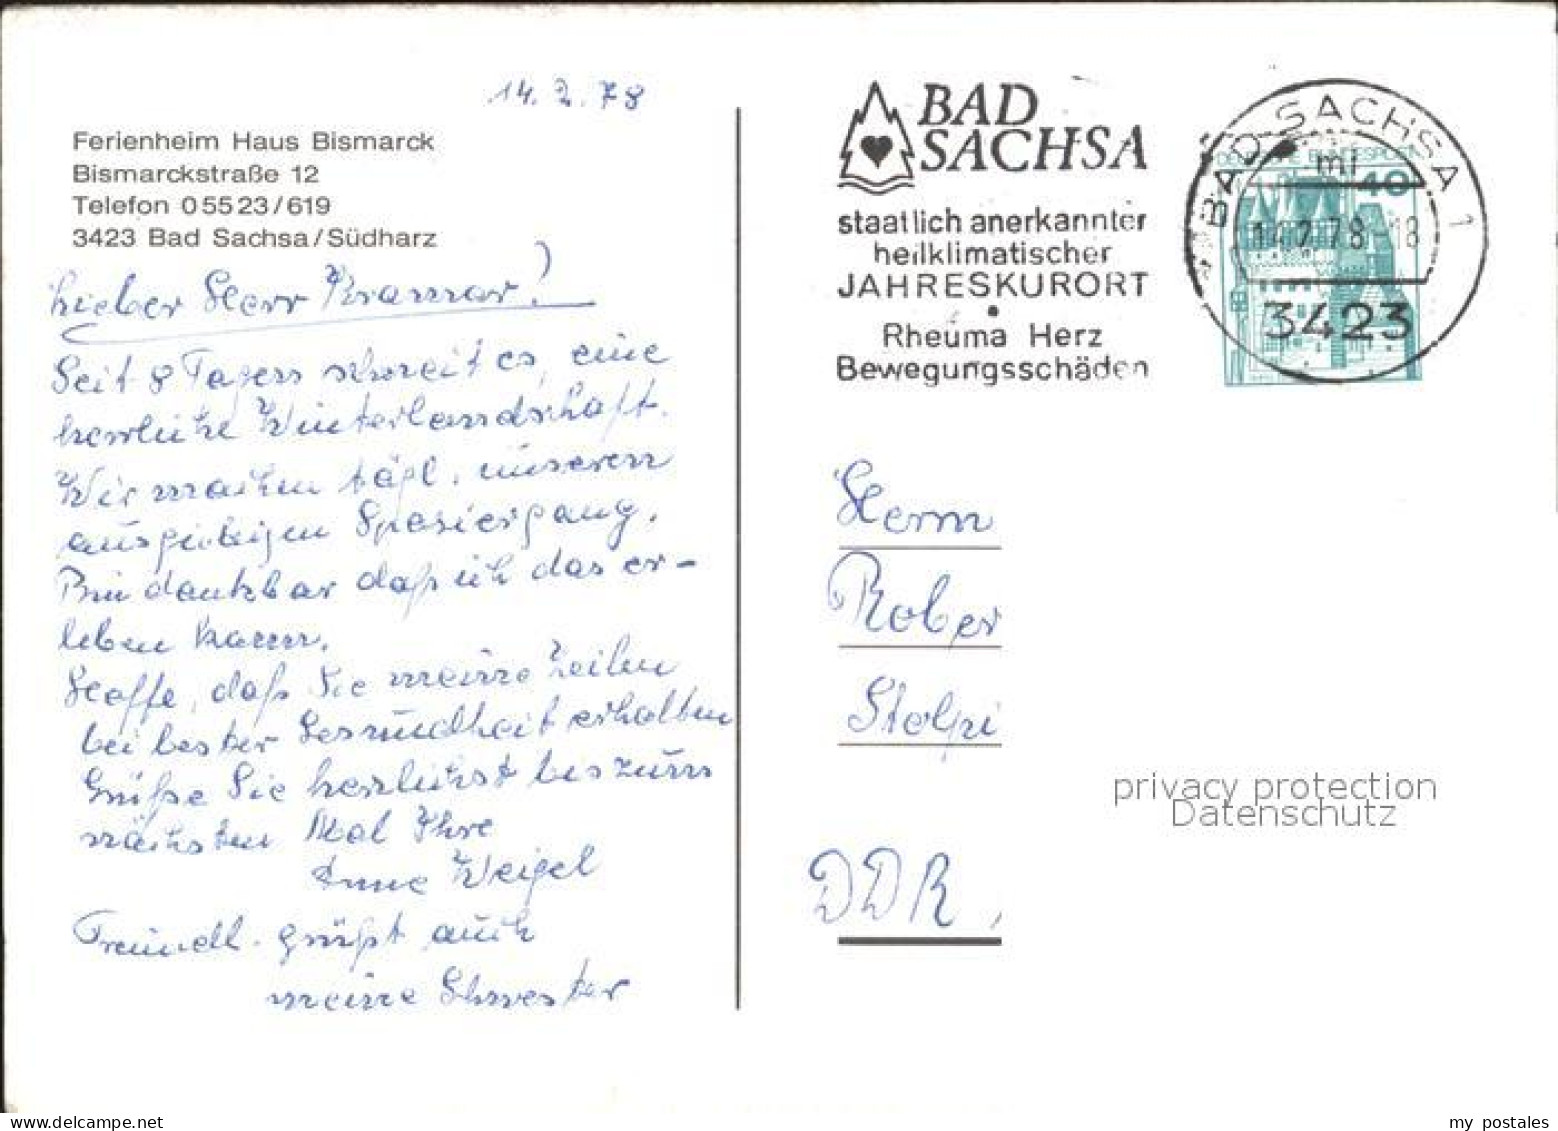 14. 2. 78
Ferienheim Haus Bismarck
Bismarckstraße 12
Telefon 0 55 23/619
3423 Bad Sachsa/Südharz
Lieber Herr Kramar!
Seit 8 Tagen schneit es, eine
herrliche Winterlandschaft.
Wir machen tägl. unseren
ausgiebigen Spaziergang.
Bin dankbar daß ich das er-
leben kann.
Hoffe, daß Sie meine Zeilen
bei bester Gesundheit erhalten
Grüße Sie herzlichst bis zum
nächsten Mal Ihre
Anne Weigel
Freundl. grüßt auch
meine Schwester
BAD
SACHSA
staatlich anerkannter
heilklimatischer
JAHRESKURORT
Rheuma Herz
Bewegungsschäden
BAD SACHSA 1
mi
14.2.78-18
3423
DEUTSCHE BUNDESPOST
40
Herrn
Rober
Stolpi
DDR,
privacy protection
Datenschutz
www.delcampe.net
my postales